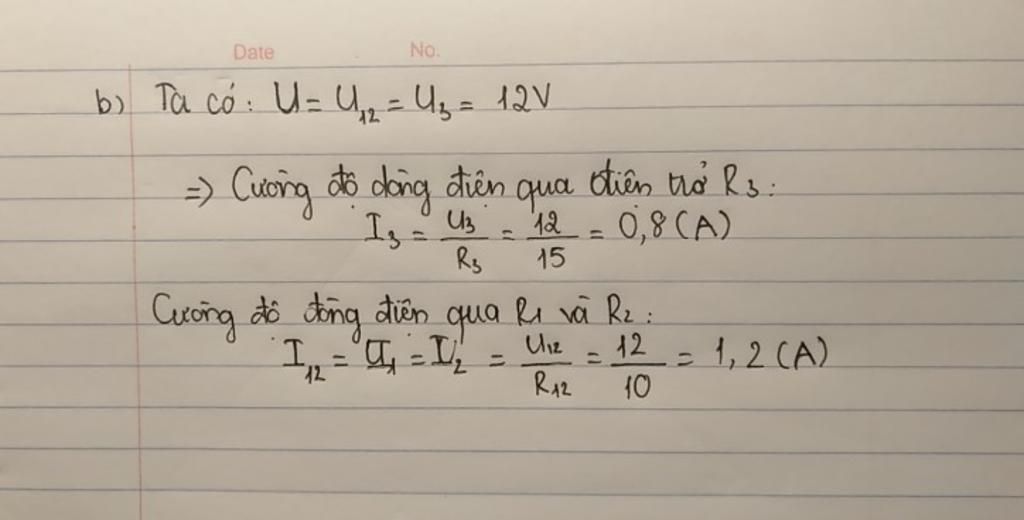 Date No.
b) Ta có: U = U12 = U3 = 12V
=> Cường độ dòng điện qua điện trở R3:
I3 = U3/R3 = 12/15 = 0,8 (A)
Cường độ dòng điện qua R1 và R2:
I12 = I1 = I2 = U12/R12 = 12/10 = 1,2 (A)